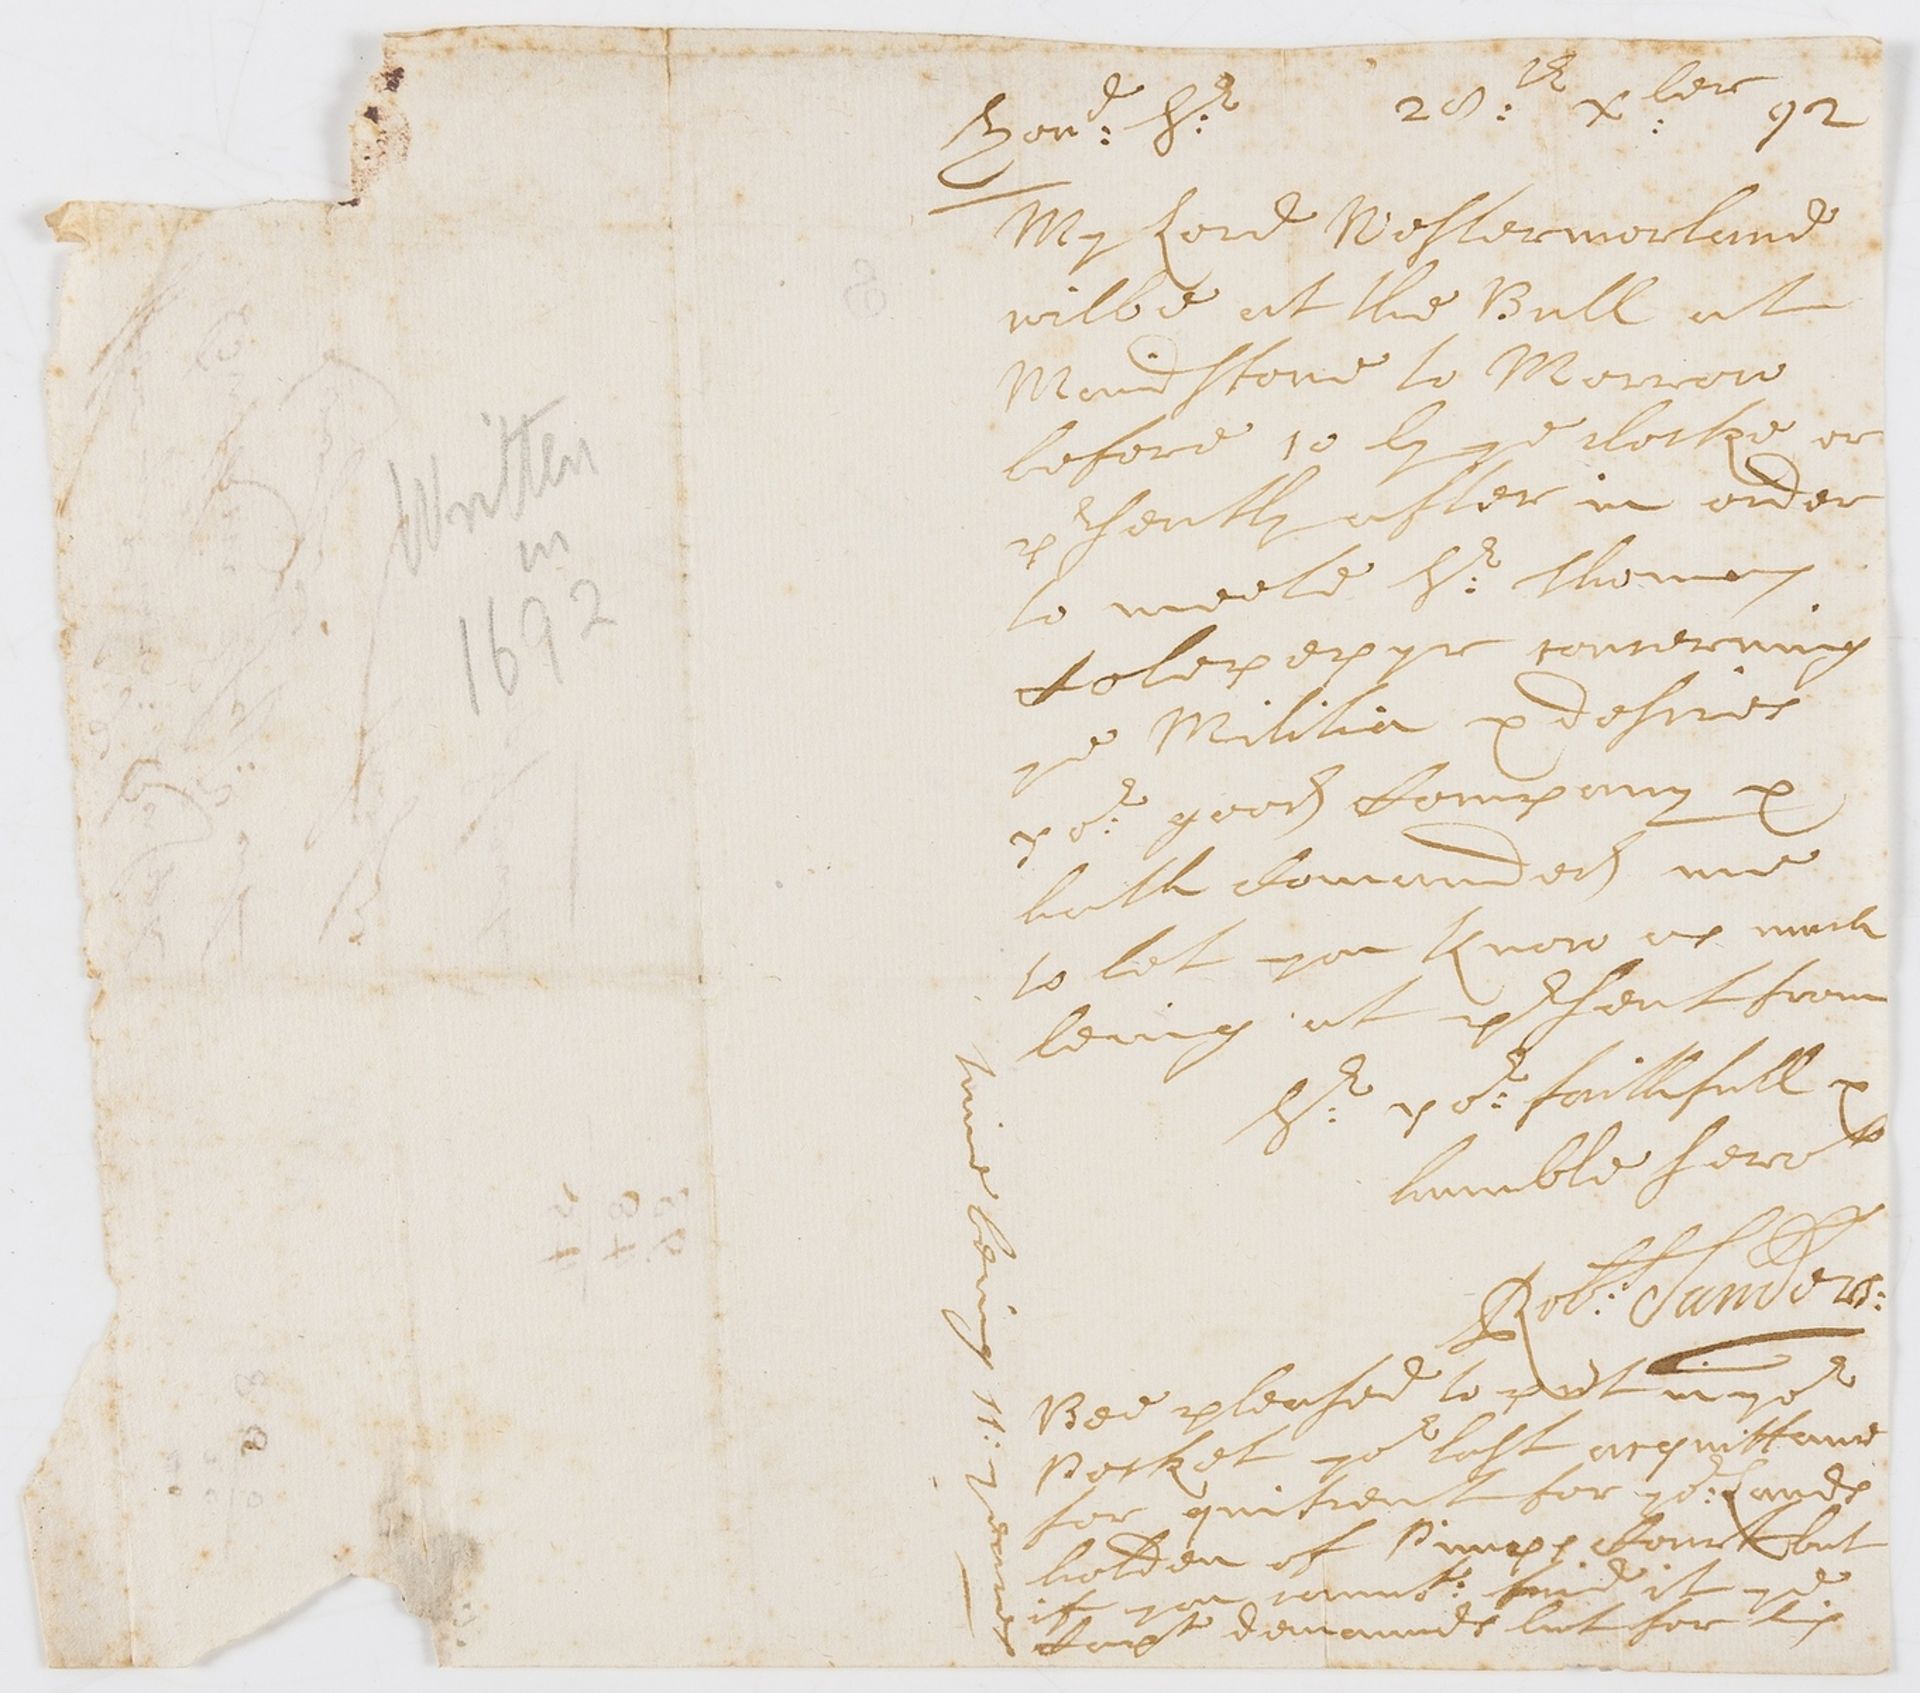 Hon:d S:r 28:th X:ber 92
My Lord Westermorland
wilbe at the Bull at
Maidstone to Morrow
before 10 by ye clocke or
p:rsently after in order
to meete S:r Thomas
ye Militia & desires
yo:r good Company &
hath Comanded me
to let you Know as much
being at p:rsent from
S:r yo:r faithfull &
humble serv:t
Rob:t Sanders:
Bee pleased to putt in yo:r
Pocket yo:r last acquittance
for quitrent for yo:r Lands
holden of Pimps Court but
if you cannot: find it ye
Capt demands but for his
time being 11: yeares
Written
in
1692